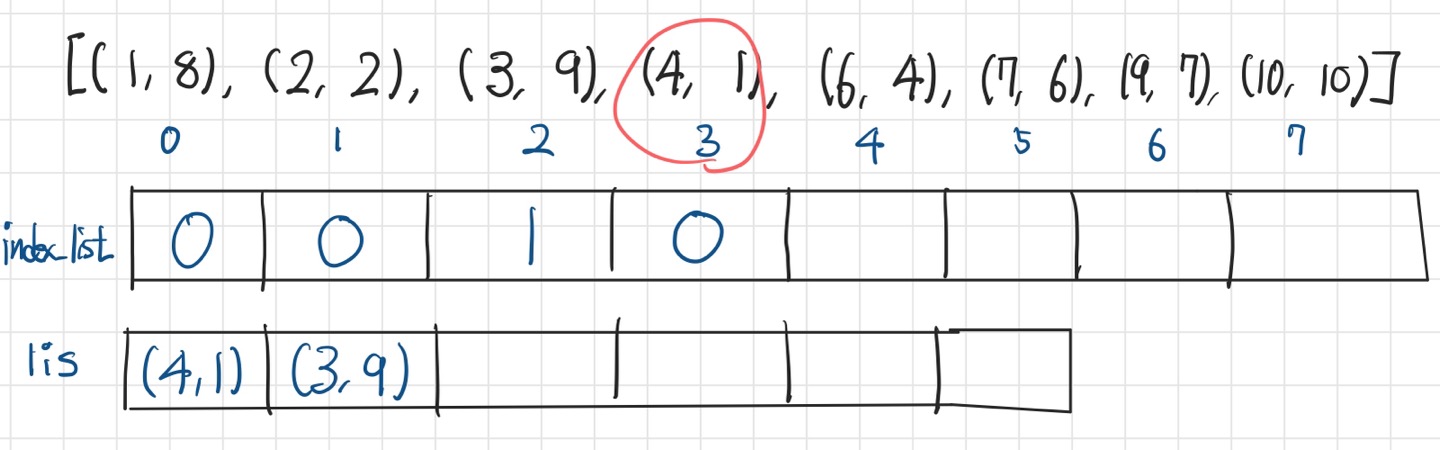 [(1, 8), (2, 2), (3, 9), (4, 1), (6, 4), (7, 6), (9, 7), (10, 10)]
0 1 2 3 4 5 6 7
index_list 0 0 1 0
lis (4,1) (3,9)